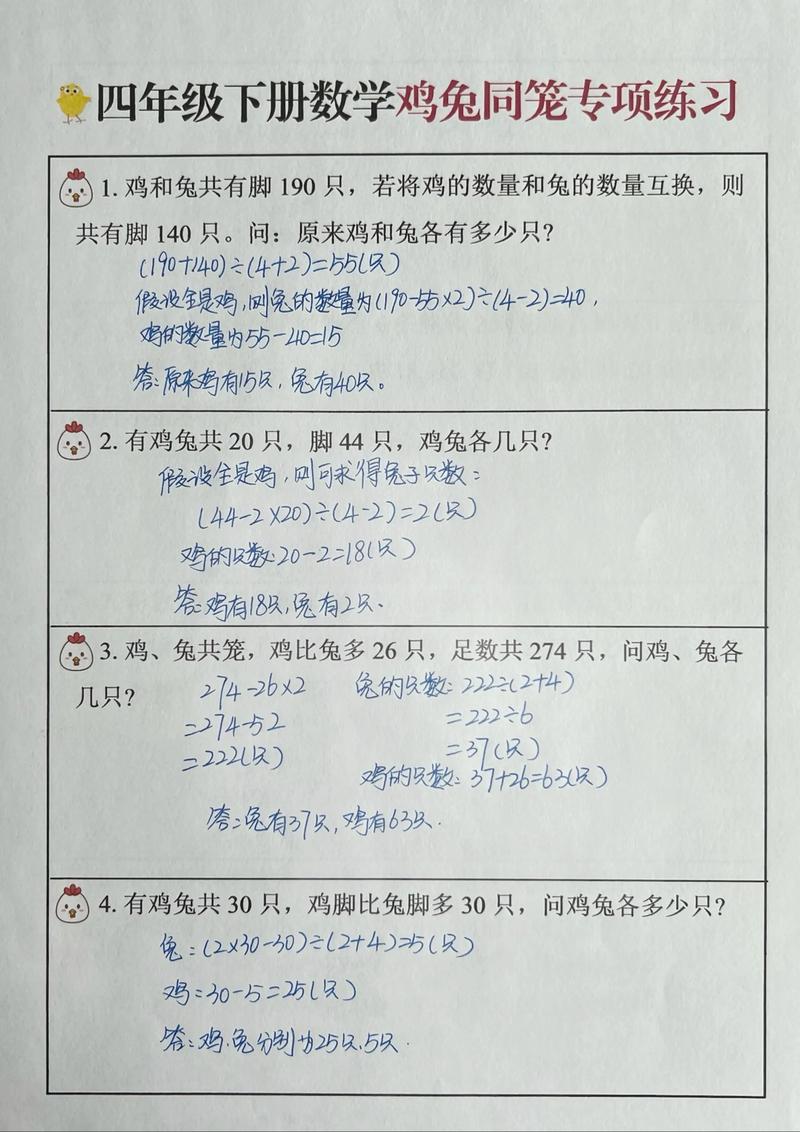 四年级下册数学鸡兔同笼专项练习
1. 鸡和兔共有脚 190 只，若将鸡的数量和兔的数量互换，则
共有脚 140 只。问：原来鸡和兔各有多少只？
(190+140)÷(4+2)=55(只)
假设全是鸡，则兔的数量为(190-55×2)÷(4-2)=40，
鸡的数量为55-40=15
答：原来鸡有15只，兔有40只。
2. 有鸡兔共 20 只，脚 44 只，鸡兔各几只？
假设全是鸡，则可求得兔子只数：
(44-2×20)÷(4-2)=2(只)
鸡的只数：20-2=18(只)
答：鸡有18只，兔有2只、
3. 鸡、兔共笼，鸡比兔多 26 只，足数共 274 只，问鸡、兔各
几只？
274-26×2
=274-52
=222(只)
兔的只数：222÷(2+4)
=222÷6
=37(只)
鸡的只数：37+26=63(只)
答：兔有37只，鸡有63只.
4. 有鸡兔共 30 只，鸡脚比兔脚多 30 只，问鸡兔各多少只？
兔：(2×30-30)÷(2+4)=5(只)
鸡：30-5=25(只)
答：鸡、兔分别为25只、5只.